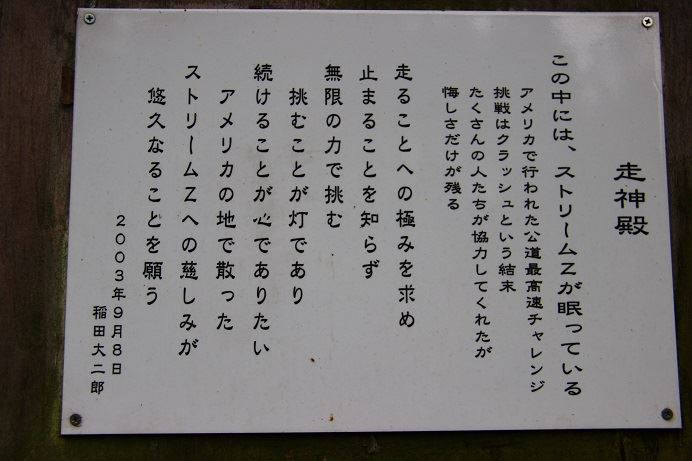 走神殿
この中には、ストリームZが眠っている
アメリカで行われた公道最高速チャレンジ
挑戦はクラッシュという結末
たくさんの人たちが協力してくれたが
悔しさだけが残る
走ることへの極みを求め
止まることを知らず
無限の力で挑む
挑むことが灯であり
続けることが心でありたい
アメリカの地で散った
ストリームZへの慈しみが
悠久なることを願う
2003年9月8日
稲田大二郎